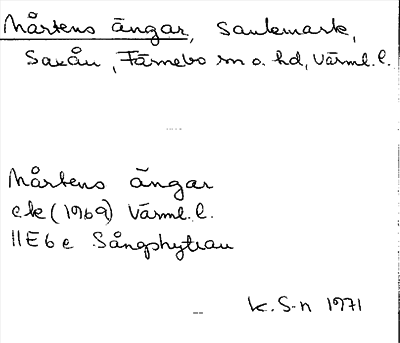 Mårtens ängar, Sankmark,
Saxån, Färnebo sn o. hd, Värml. l.
Mårtens ängar
ek (1969) Värml. l.
11E 6 e Sångshyttan
K. S-n 1971